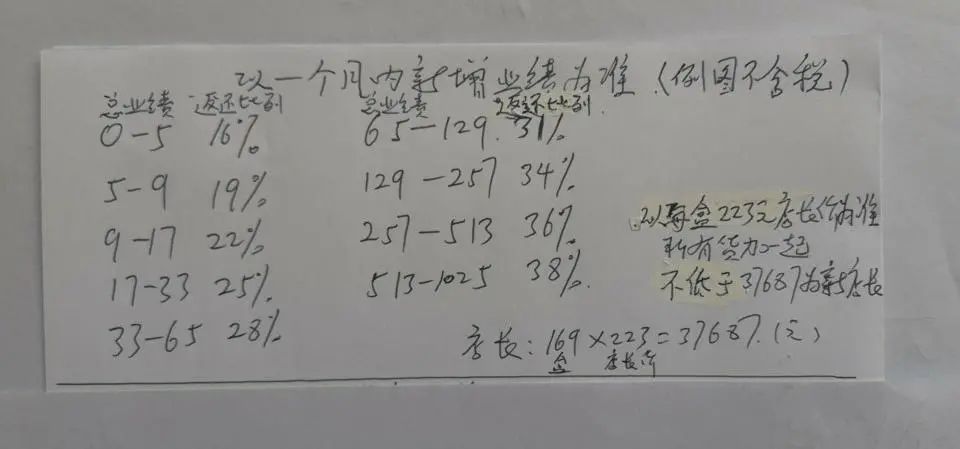 以一个月内新增业绩为准(例图不含税)
总业绩 返还比例 总业绩 返还比例
0-5 16% 65-129 31%
5-9 19% 129-257 34%
9-17 22% 257-513 36%
17-33 25% 513-1025 38%
33-65 28%
以每盒223元店长价为准
所有货加一起
不低于37687为新店长
店长:169×223=37687(元)
盒 店长价